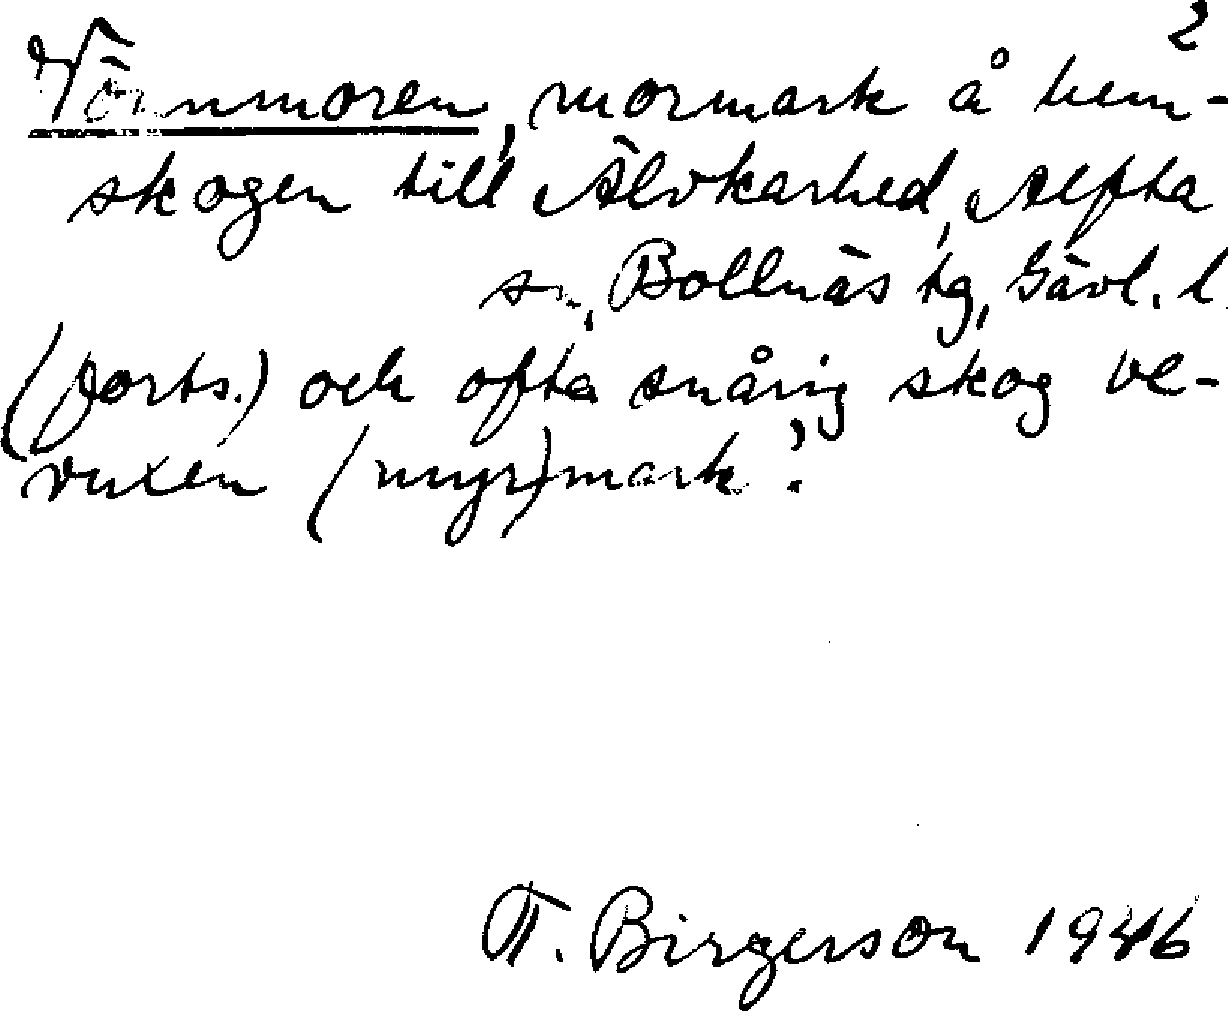 2
mormark å hem-
skogen till Älvkarhed, Alfta
sn., Bollnäs tg, Gävl. l.
(forts.) och ofta snårig skog be-
vuxen (myr)mark'.
T. Birgerson 1946